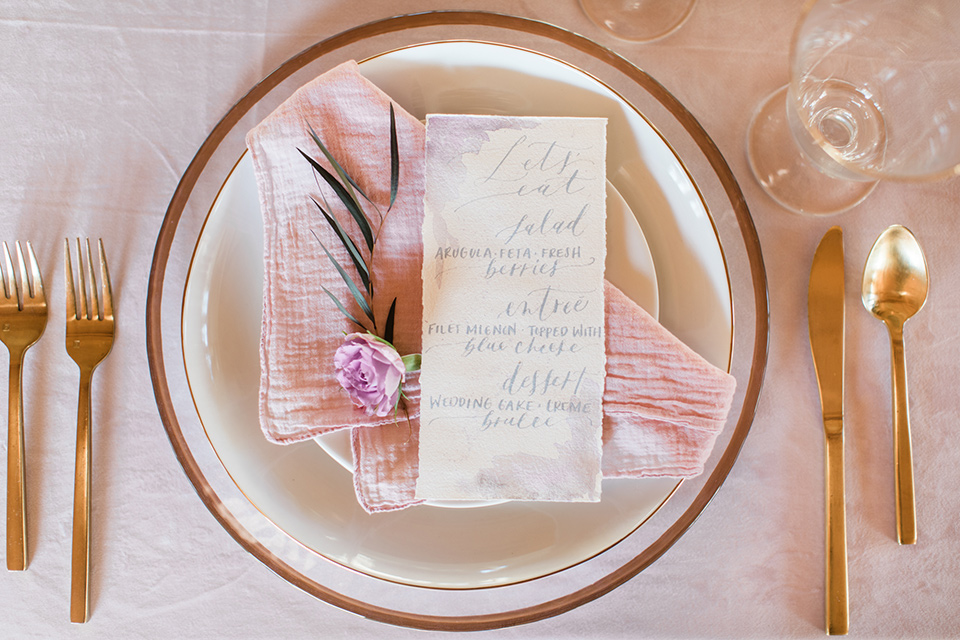 Let's
eat
salad
ARUGULA · FETA · FRESH
berries
entreé
FILET MIGNON · TOPPED WITH
blue cheese
dessert
WEDDING CAKE · CREME
brulee